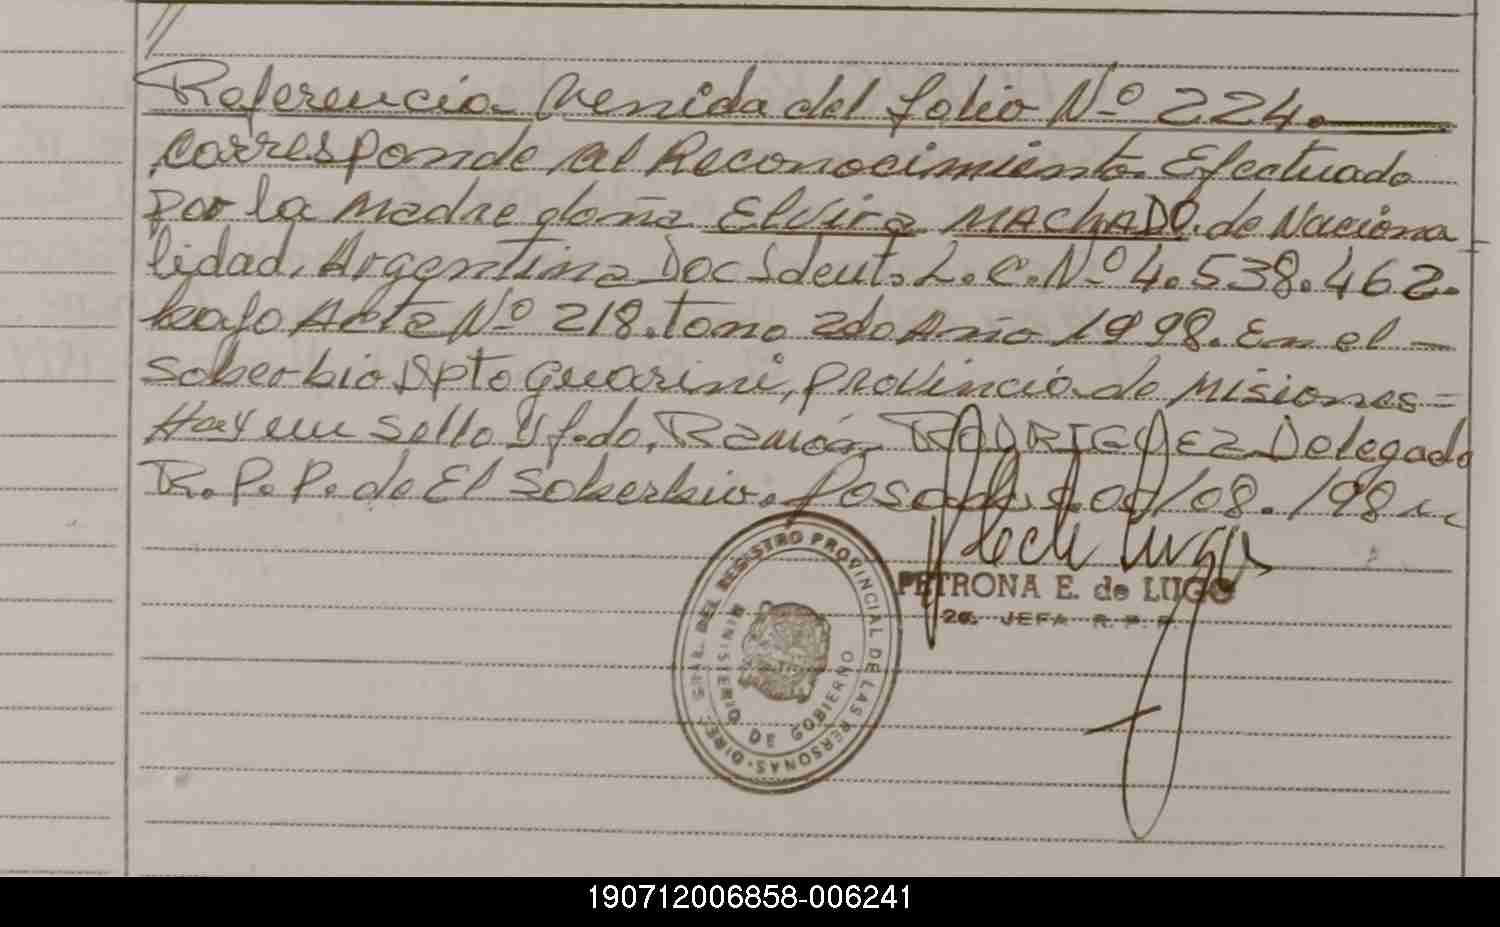 //
Referencia Venida del folio Nº 224.
Corresponde al Reconocimiento Efectuado
por la madre doña Elvira MACHADO. de Naciona=
lidad, Argentina Doc Ident. L.C. Nº 4.538.462.
bajo Acta Nº 218. tomo 2do Año 1998. En el -
Soberbio Dpto Guarini, provincia de Misiones =
Hay un Sello y fdo. Ramón RODRIGUEZ Delegado
R.P.P. de El Soberbio. Posadas 05/08./98
PETRONA E. de LUGO
2a. JEFA R. P. P.
DIREC. GRAL. DEL REGISTRO PROVINCIAL DE LAS PERSONAS
MINISTERIO DE GOBIERNO
190712006858-006241